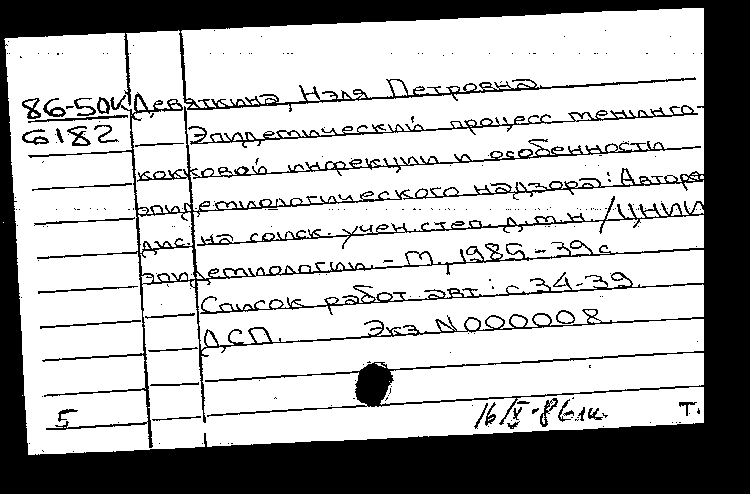 86-50К Девяткина, Нэля Петровна.
6182 Эпидемический процесс менинго-
кокковой инфекции и особенности
эпидемиологического надзора: Автореф.
дис. на соиск. учен. степ. д.м.н. /ЦНИИ
эпидемиологии. - М., 1985 - 39 с.
Список работ авт.: с. 34-39.
ДСП. Экз N000008.
5 16/X-86 т.